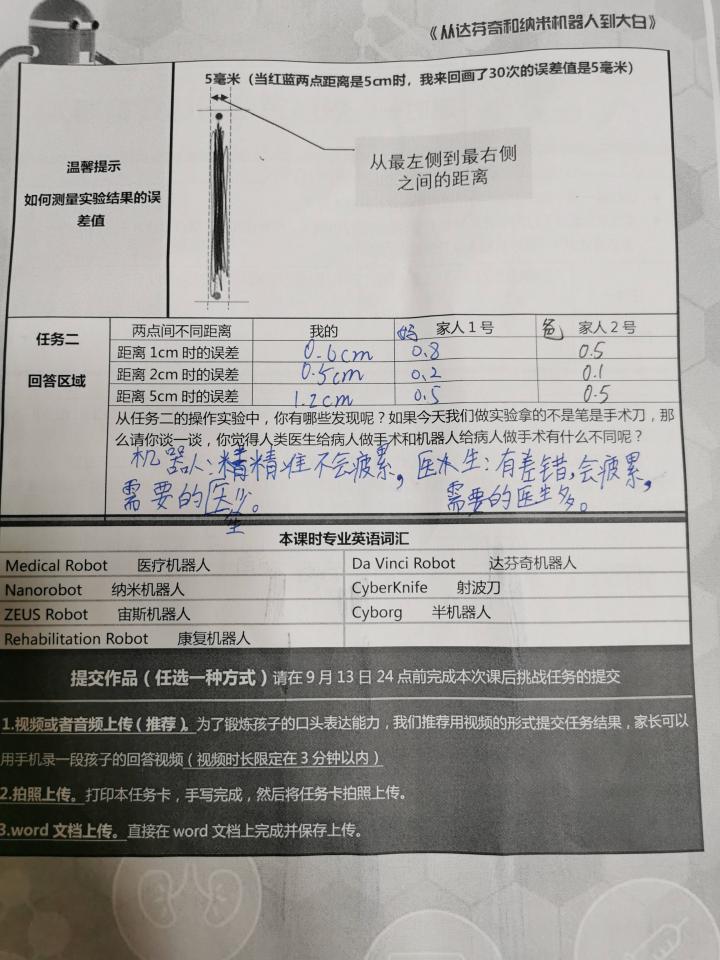 《从达芬奇和纳米机器人到大白》
5毫米（当红蓝两点距离是5cm时，我来回画了30次的误差值是5毫米）
从最左侧到最右侧
之间的距离
温馨提示
如何测量实验结果的误
差值
任务二
回答区域
两点间不同距离 我的 妈 家人1号 爸 家人2号
距离 1cm 时的误差 0.6cm 0.8 0.5
距离 2cm 时的误差 0.5cm 0.2 0.1
距离 5cm 时的误差 1.2cm 0.5 0.5
从任务二的操作实验中，你有哪些发现呢？如果今天我们做实验拿的不是笔是手术刀，那
么请你谈一谈，你觉得人类医生给病人做手术和机器人给病人做手术有什么不同呢？
机器人：精准不会疲累，医生：有差错，会疲累，
需要的医生少。 需要的医生多。
本课时专业英语词汇
Medical Robot 医疗机器人 Da Vinci Robot 达芬奇机器人
Nanorobot 纳米机器人 CyberKnife 射波刀
ZEUS Robot 宙斯机器人 Cyborg 半机器人
Rehabilitation Robot 康复机器人
提交作品（任选一种方式）请在9月13日24点前完成本次课后挑战任务的提交
1.视频或者音频上传（推荐）。为了锻炼孩子的口头表达能力，我们推荐用视频的形式提交任务结果，家长可以
用手机录一段孩子的回答视频（视频时长限定在3分钟以内）
2.拍照上传。打印本任务卡，手写完成，然后将任务卡拍照上传。
3.word 文档上传。直接在 word 文档上完成并保存上传。